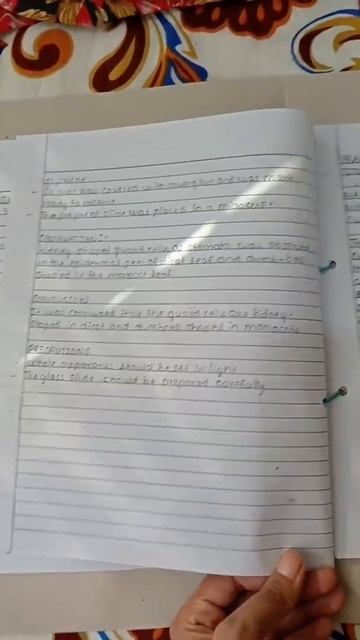 It was now covered with
ready to
The prepared slide was placed in a microscope.
OBSERVATIONS
Kidney shaped guard cells of stomata was observed
in the epidermal peel of dicot leaf and dumb-bell
shaped in the monocot leaf
CONCLUSION
It was concluded that the guard cells are kidney-
shaped in dicot and dumbbell shaped in monocots
PRECAUTIONS
Whole apparatus should be set in light
The glass slide should be prepared carefully